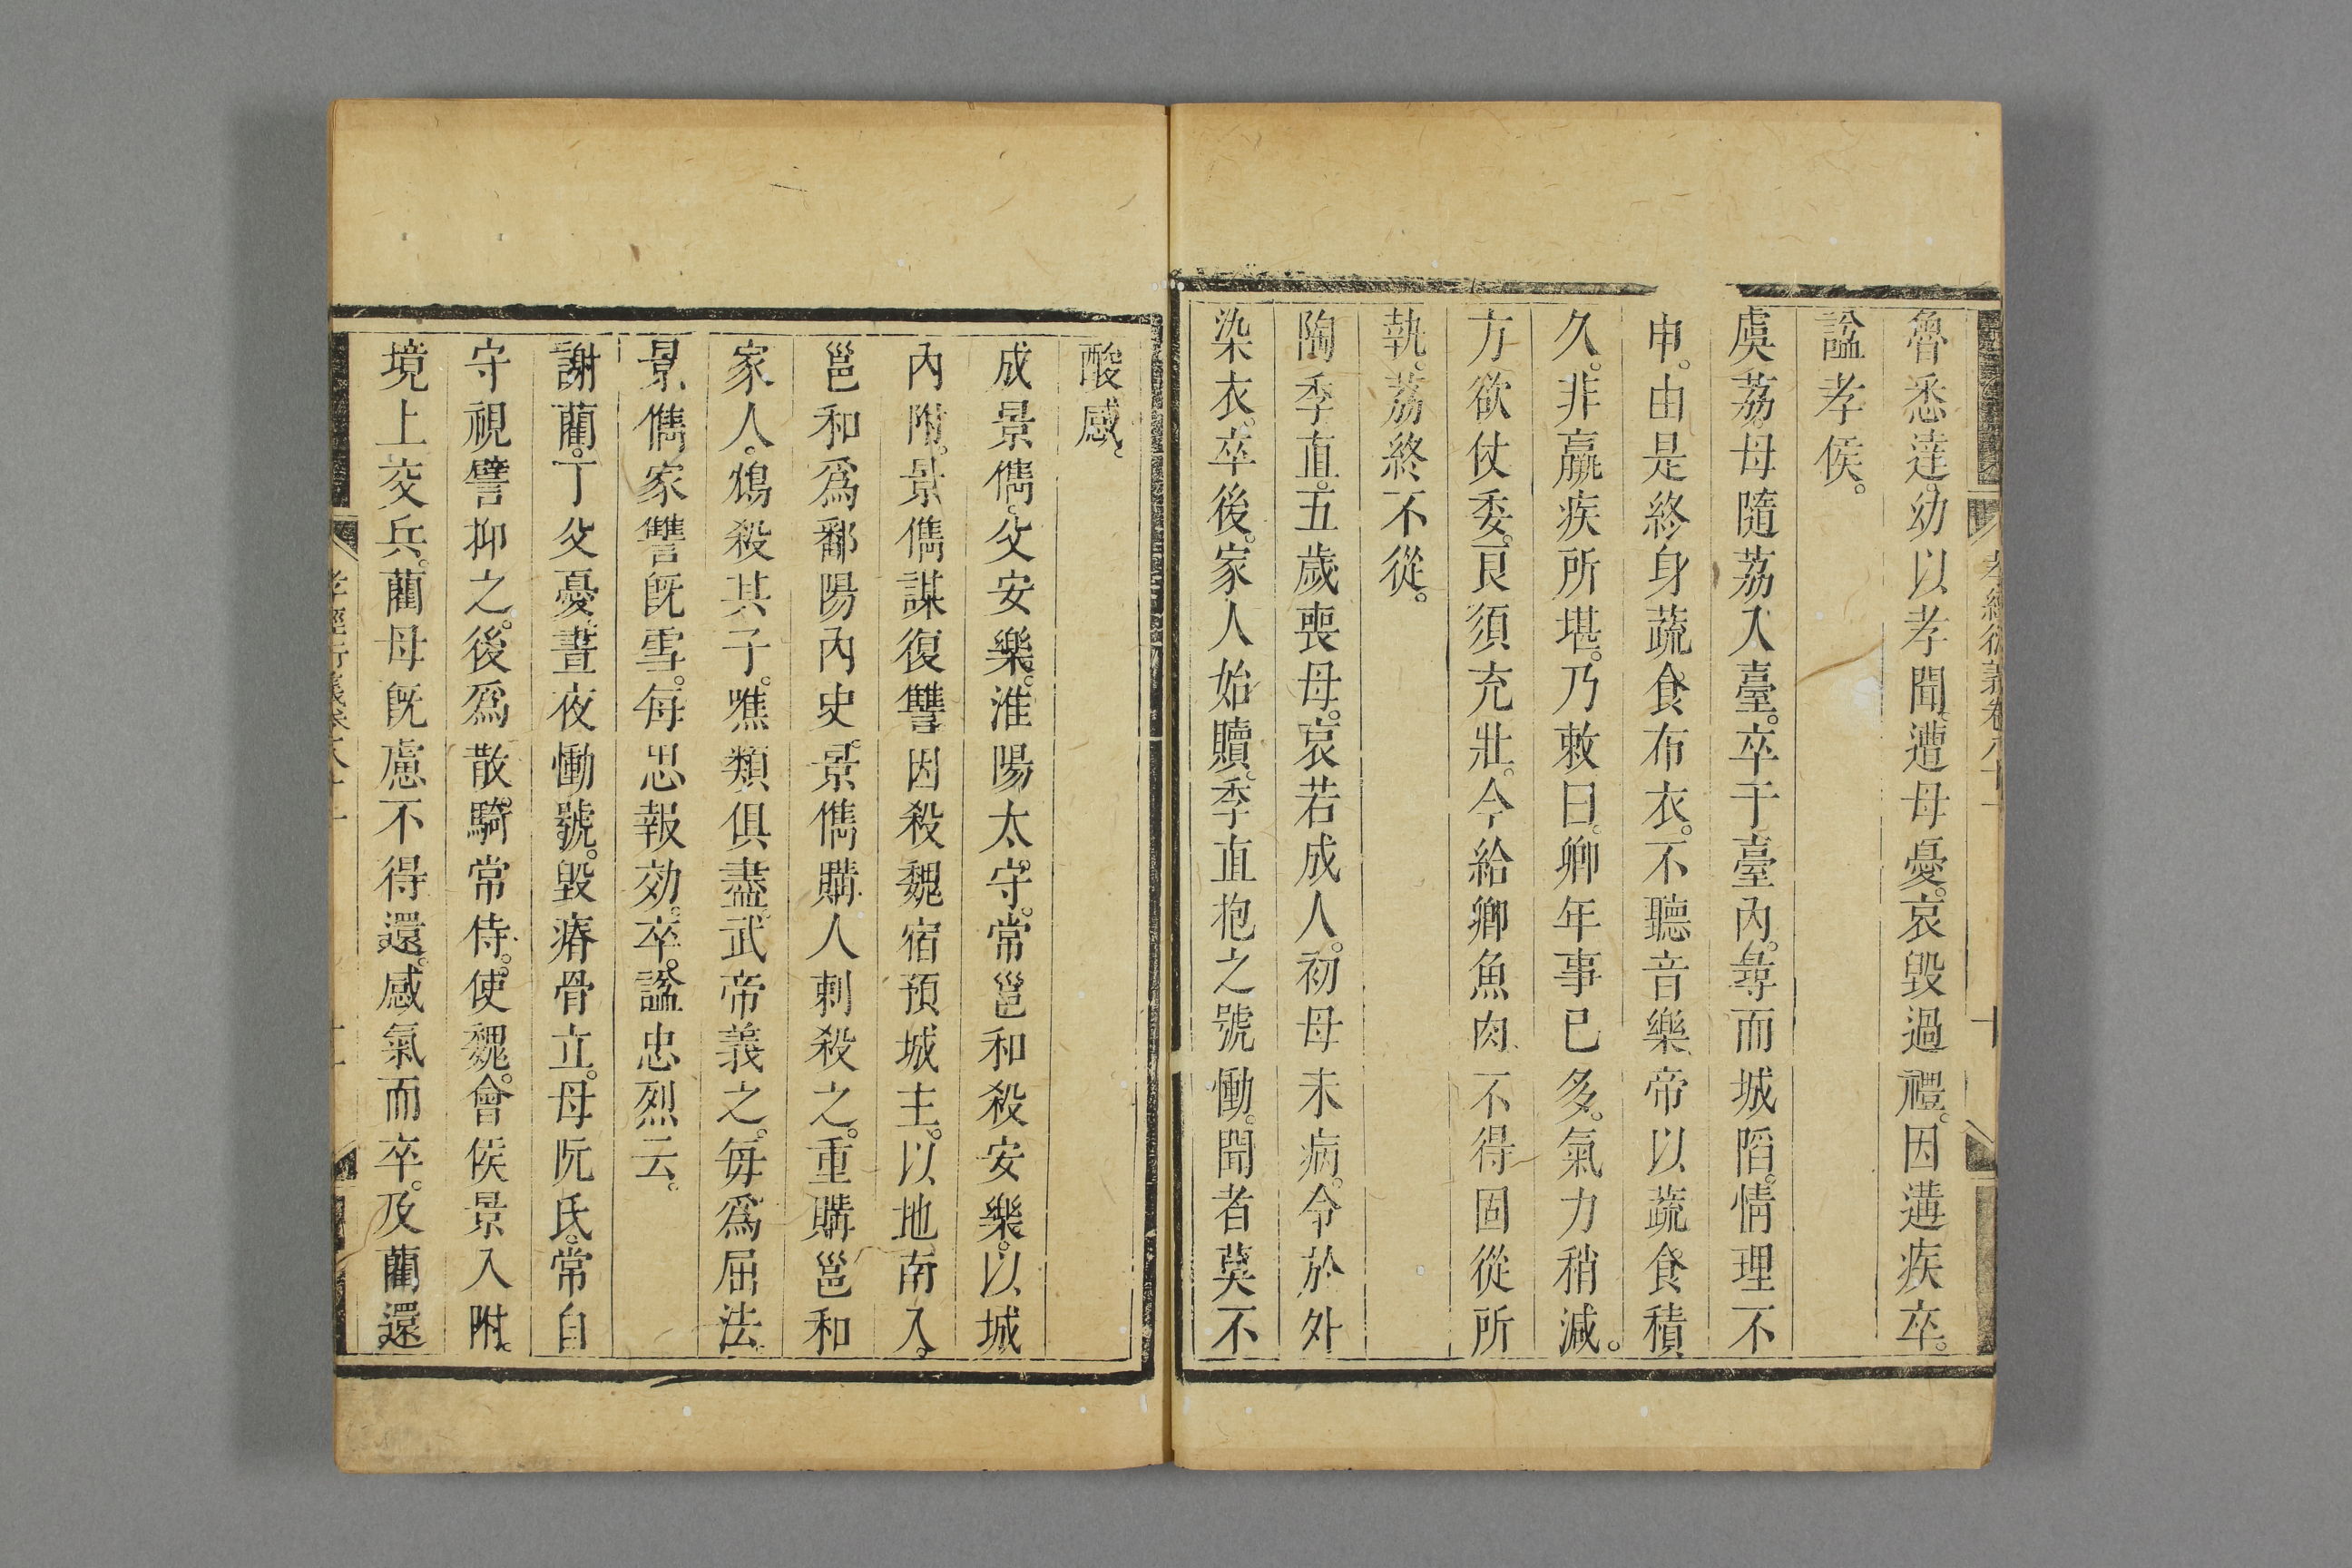 孝經衍義卷六十一 十
魯悉達幼以孝聞遭母憂哀毀過禮因遘疾卒。
謚孝侯。
虞荔母隨荔入臺。卒于臺內。尋而城陷。情理不
申。由是終身蔬食布衣。不聽音樂帝以蔬食積
久。非羸疾所堪。乃敕曰。卿年事已多。氣力稍減。
方欲仗委。良須充壯。今給卿魚肉不得固從所
執。荔終不從。
陶季直。五歲喪母。哀若成人。初母未病。令於外
染衣。卒後。家人始贖。季直抱之號慟。聞者莫不
酸感。
成景儁。父安樂。淮陽太守。常邕和殺安樂。以城
內附。景儁謀復讐因殺魏宿預城主。以地南入。
邕和為鄱陽內史。景儁購人刺殺之。重購邕和
家人。鴆殺其子。噍類俱盡。武帝義之。每爲屈法。
景儁家讐旣雪。每思報効。卒。謚忠烈云。
謝藺。丁父憂晝夜慟號。毀瘠骨立。母阮氏。常自
守視譬抑之。後爲散騎常侍。使魏。會侯景入附。
境上交兵。藺母旣慮不得還。感氣而卒。及藺還
孝經衍義卷六十一 十一